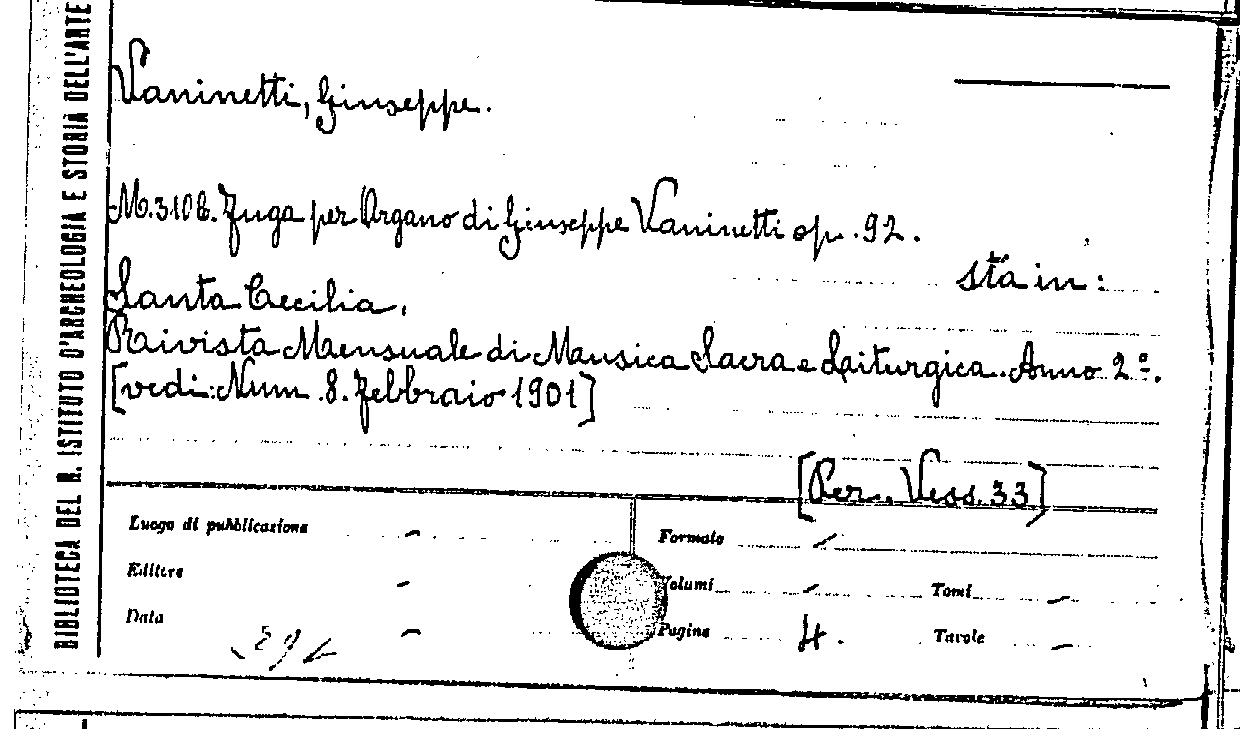 BIBLIOTECA DEL R. ISTITUTO D'ARCHEOLOGIA E STORIA DELL'ARTE
Vaninetti, Giuseppe.
M.3108. Fuga per Organo di Giuseppe Vaninetti op. 92.
sta in:
Santa Cecilia.
Raivista Mensuale di Mausica Sacra e Laiturgica. Anno 2º.
[vedi: Num. 8. Febbraio 1901]
[Per. Vess. 33]
Luogo di pubblicazione –
Formato –
Editore –
Volumi – Tomi –
Data –
Pagine 4. Tavole –